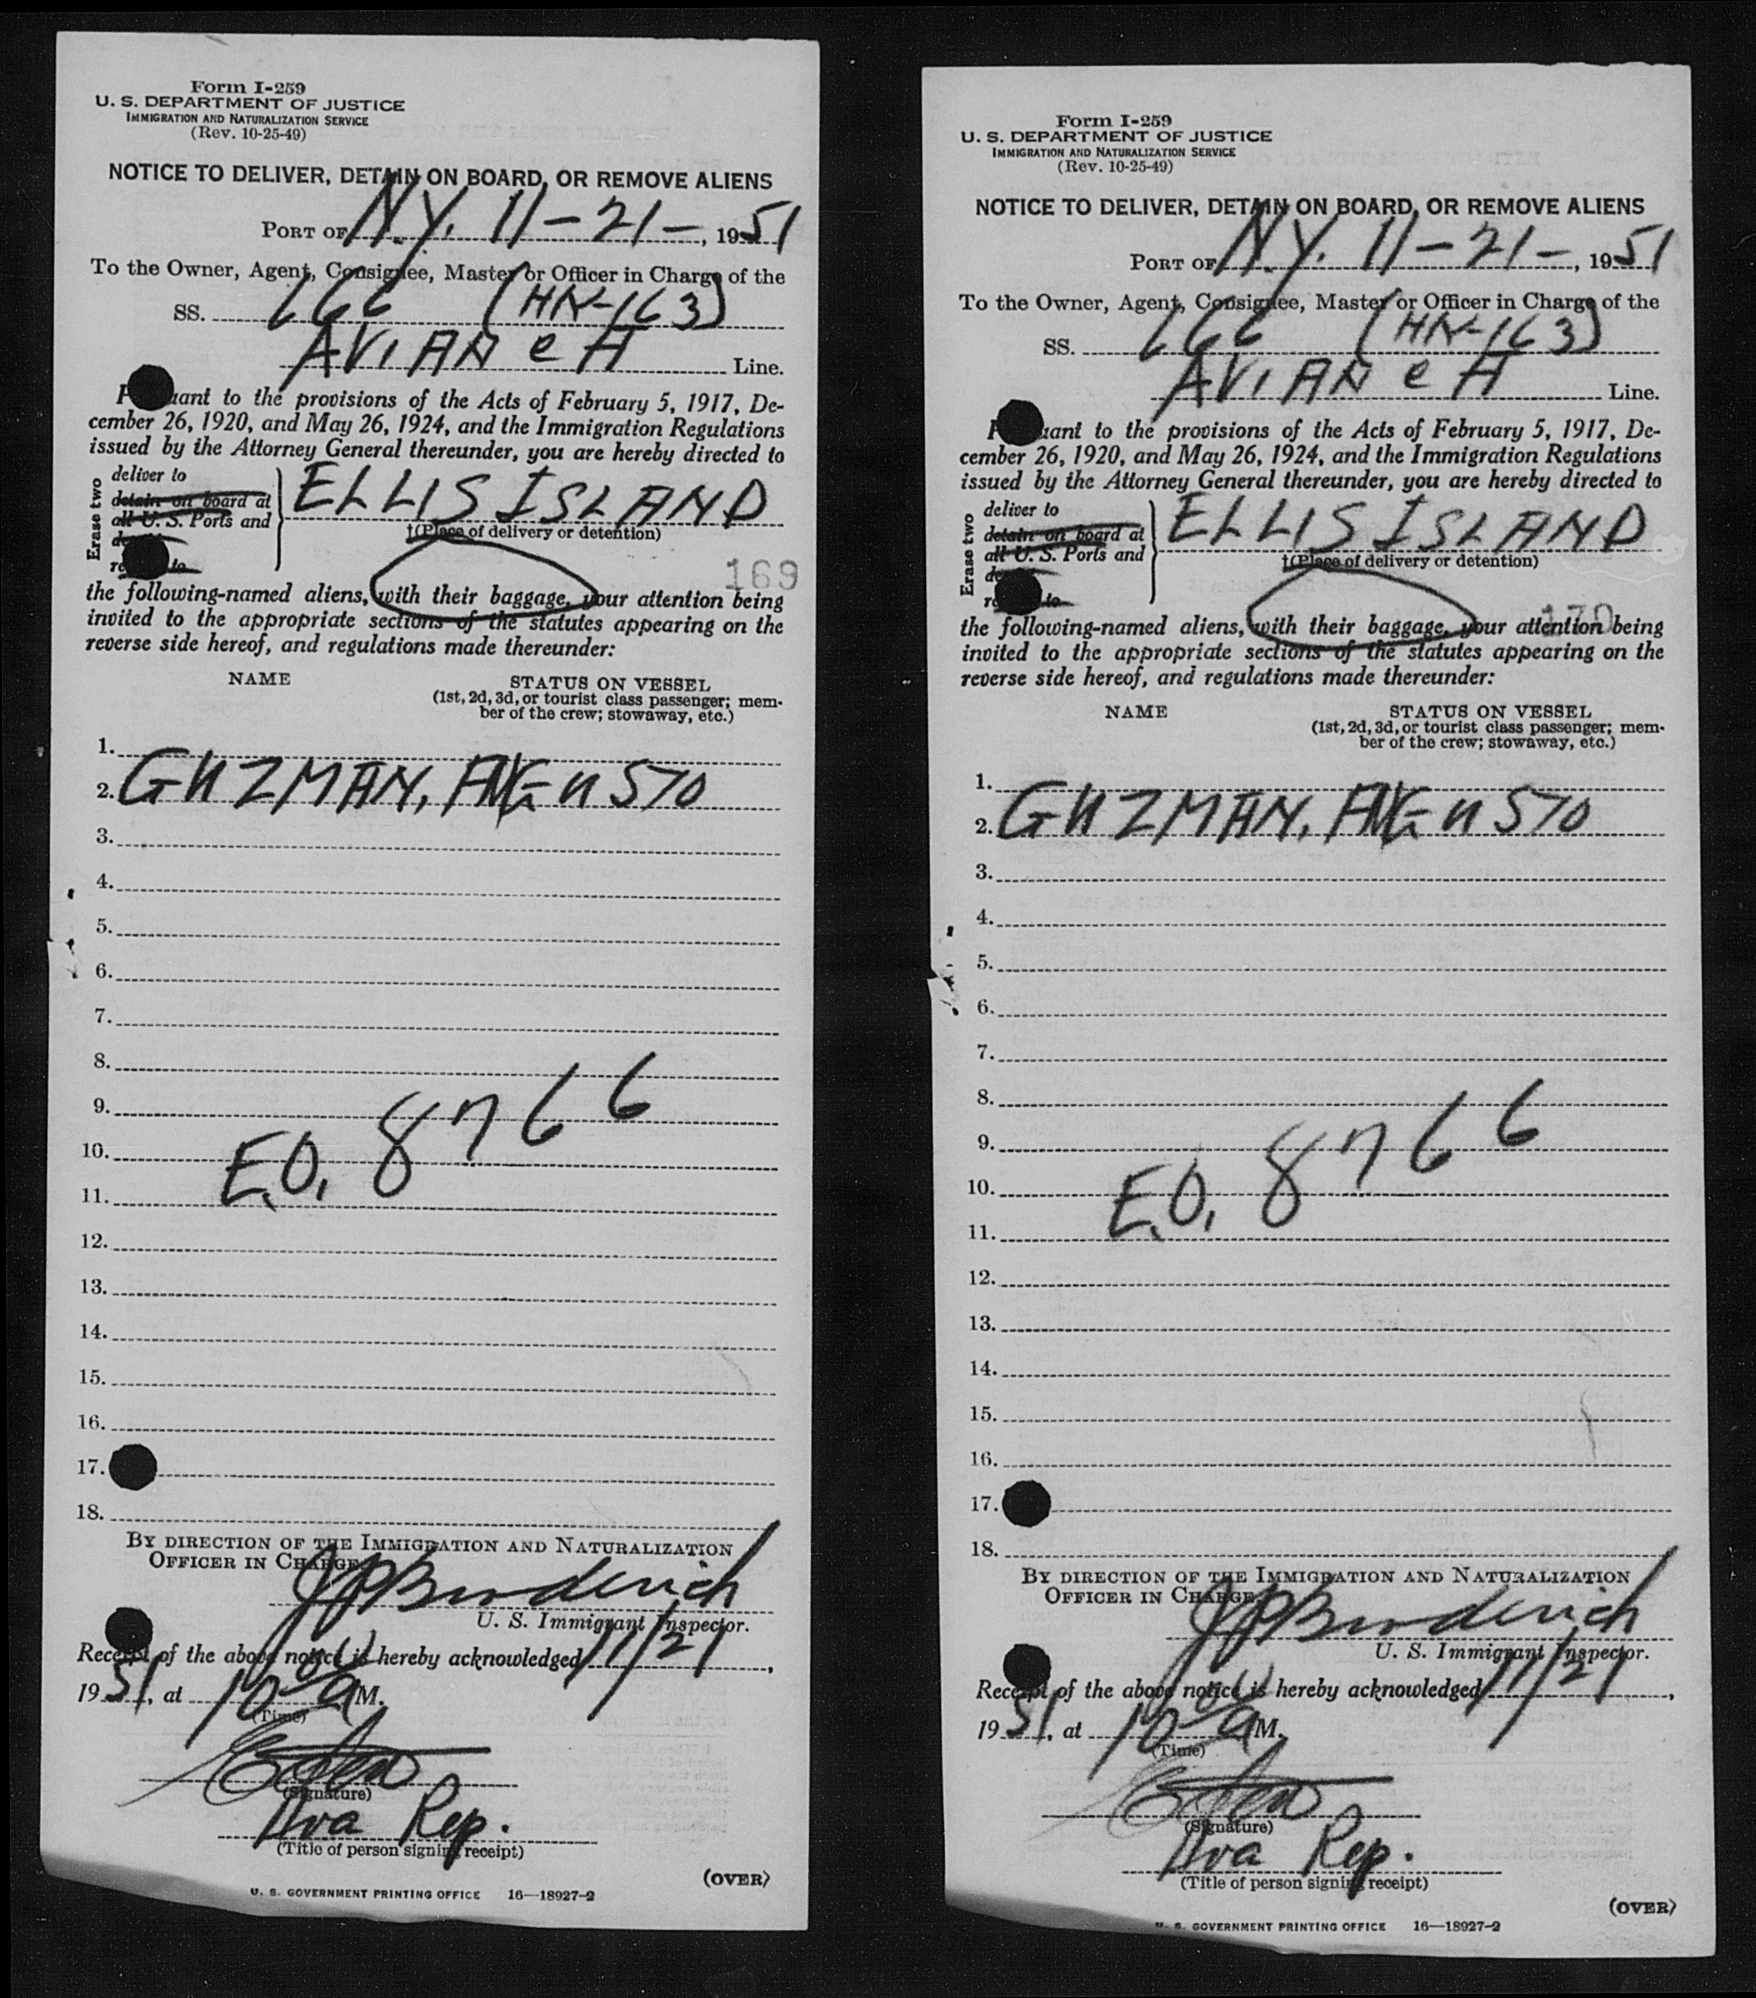 Form I-259
U. S. DEPARTMENT OF JUSTICE
IMMIGRATION AND NATURALIZATION SERVICE
(Rev. 10-25-49)
NOTICE TO DELIVER, DETAIN ON BOARD, OR REMOVE ALIENS
PORT OF N.Y. 11-21-, 1951
To the Owner, Agent, Consignee, Master or Officer in Charge of the
SS. 666 (HK-163)
AVIANCA Line.
Pursuant to the provisions of the Acts of February 5, 1917, De-
cember 26, 1920, and May 26, 1924, and the Immigration Regulations
issued by the Attorney General thereunder, you are hereby directed to
Erase two
deliver to
detain on board at
all U. S. Ports and
to
ELLIS ISLAND
†(Place of delivery or detention)
169
the following-named aliens, with their baggage, your attention being
invited to the appropriate sections of the statutes appearing on the
reverse side hereof, and regulations made thereunder:
NAME STATUS ON VESSEL
(1st, 2d, 3d, or tourist class passenger; mem-
ber of the crew; stowaway, etc.)
1.
2. GUZMAN, AUGUSTO
3.
4.
5.
6.
7.
8.
9.
10.
E.O. 8766
11.
12.
13.
14.
15.
16.
17.
18.
BY DIRECTION OF THE IMMIGRATION AND NATURALIZATION
OFFICER IN CHARGE
U. S. Immigrant Inspector.
Receipt of the above notice is hereby acknowledged 11/21,
1951, at 10 AM.
(Time)
(Signature)
Ava Rep.
(Title of person signing receipt)
(OVER)
U. S. GOVERNMENT PRINTING OFFICE 16—18927-2
Form I-259
U. S. DEPARTMENT OF JUSTICE
IMMIGRATION AND NATURALIZATION SERVICE
(Rev. 10-25-49)
NOTICE TO DELIVER, DETAIN ON BOARD, OR REMOVE ALIENS
PORT OF N.Y. 11-21-, 1951
To the Owner, Agent, Consignee, Master or Officer in Charge of the
SS. 666 (HK-163)
AVIANCA Line.
Pursuant to the provisions of the Acts of February 5, 1917, De-
cember 26, 1920, and May 26, 1924, and the Immigration Regulations
issued by the Attorney General thereunder, you are hereby directed to
Erase two
deliver to
detain on board at
all U. S. Ports and
to
ELLIS ISLAND
†(Place of delivery or detention)
170
the following-named aliens, with their baggage, your attention being
invited to the appropriate sections of the statutes appearing on the
reverse side hereof, and regulations made thereunder:
NAME STATUS ON VESSEL
(1st, 2d, 3d, or tourist class passenger; mem-
ber of the crew; stowaway, etc.)
1.
2. GUZMAN, AUGUSTO
3.
4.
5.
6.
7.
8.
9.
10.
E.O. 8766
11.
12.
13.
14.
15.
16.
17.
18.
BY DIRECTION OF THE IMMIGRATION AND NATURALIZATION
OFFICER IN CHARGE
U. S. Immigrant Inspector.
Receipt of the above notice is hereby acknowledged 11/21,
1951, at 10 AM.
(Time)
(Signature)
Ava Rep.
(Title of person signing receipt)
(OVER)
U. S. GOVERNMENT PRINTING OFFICE 16—18927-2